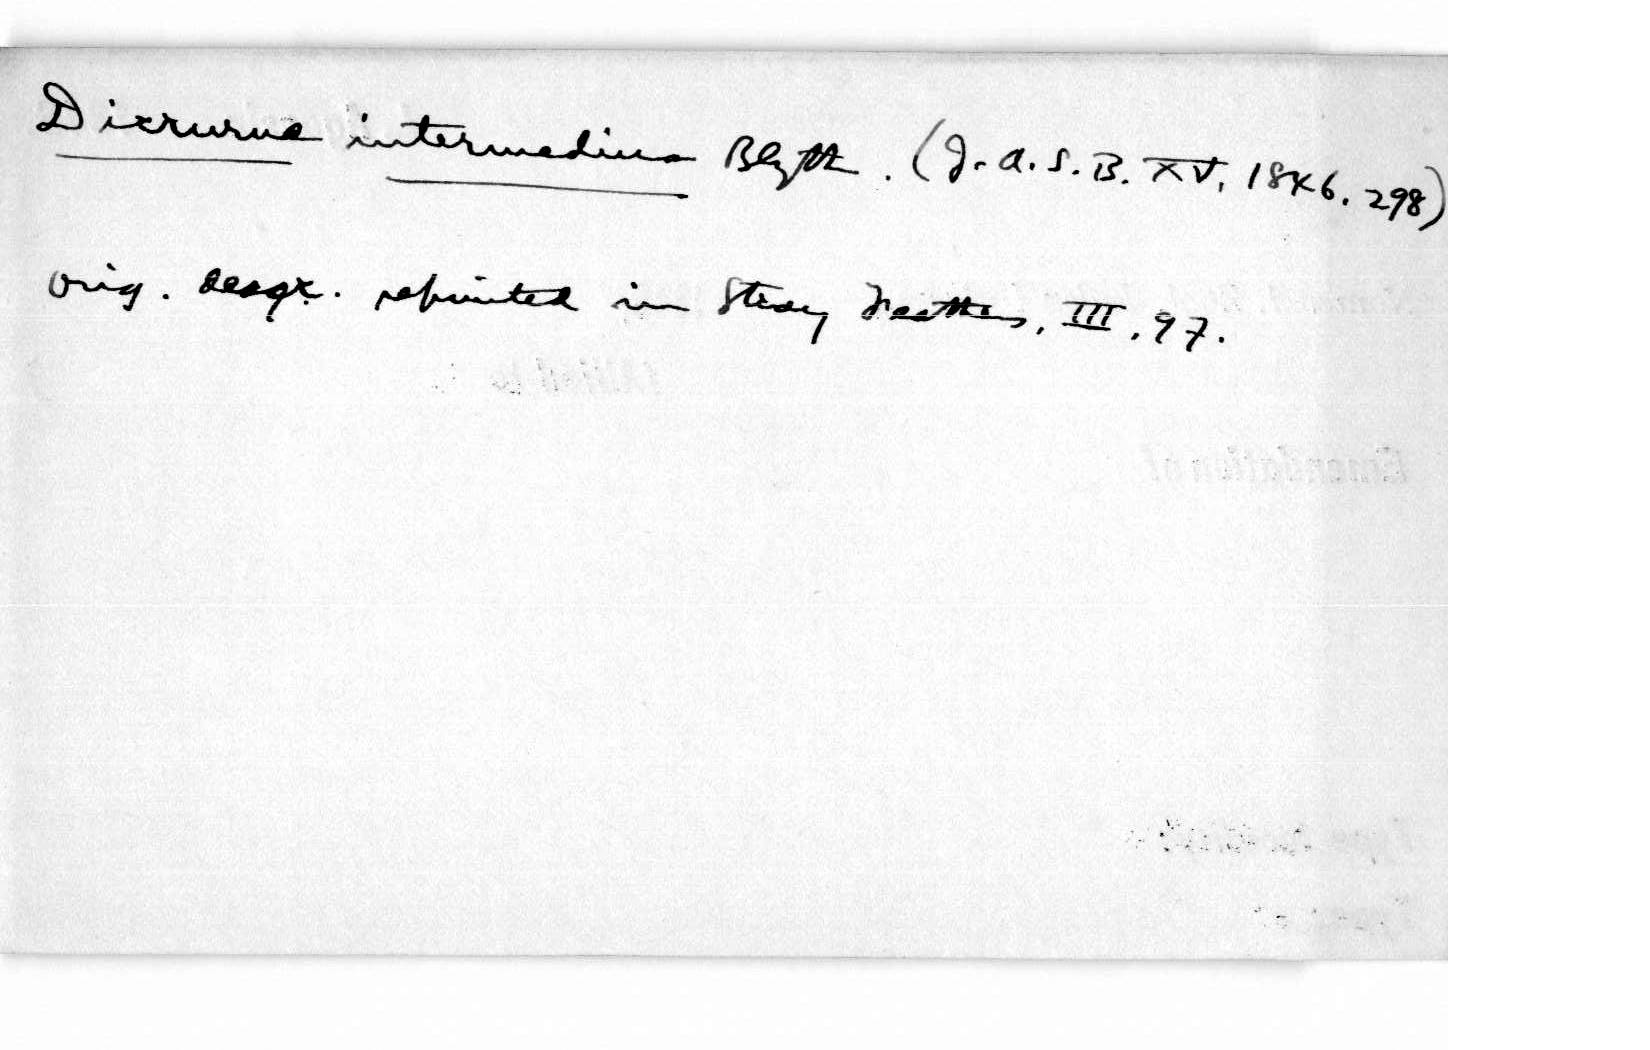 Dicrurus intermedius Blyth. (J. A. S. B. XV, 1846. 298)
Orig. descr. reprinted in Stray Feathers, III, 97.